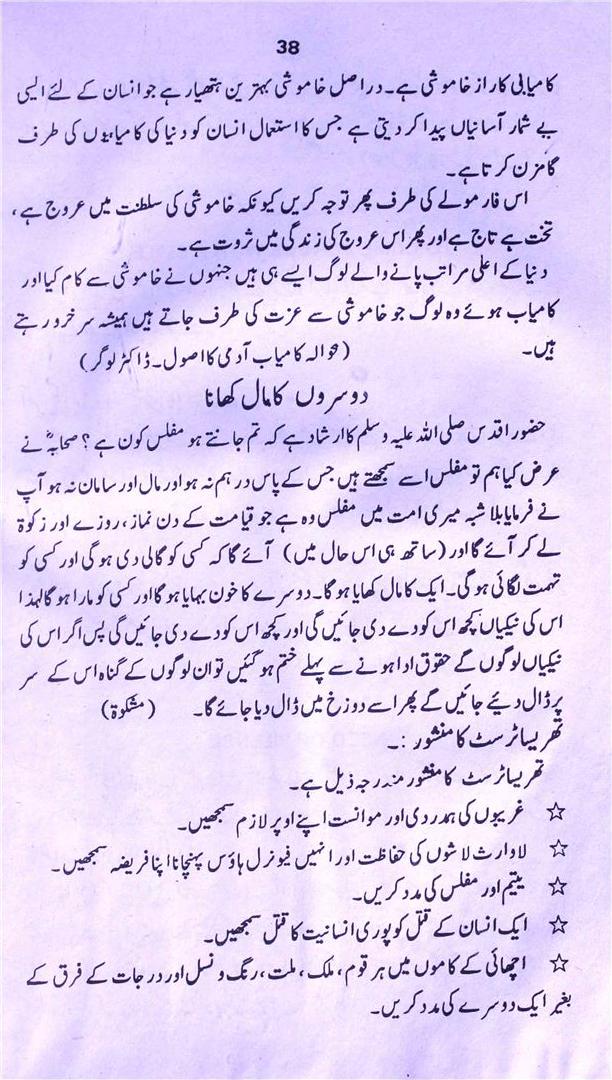 38
کامیابی کا راز خاموشی ہے۔ دراصل خاموشی بہترین ہتھیار ہے جو انسان کے لئے ایسی
بے شمار آسانیاں پیدا کر دیتی ہے جس کا استعمال انسان کو دنیا کی کامیابیوں کی طرف
گامزن کرتا ہے۔
اس فارمولے کی طرف پھر توجہ کریں کیونکہ خاموشی کی سلطنت میں عروج ہے،
تخت بے تاج ہے اور پھر اس عروج کی زندگی میں ثروت ہے۔
دنیا کے اعلیٰ مراتب پانے والے لوگ ایسے ہی ہیں جنہوں نے خاموشی سے کام کیا اور
کامیاب ہوئے وہ لوگ جو خاموشی سے عزت کی طرف جاتے ہیں ہمیشہ سرخرو رہتے
ہیں۔ (حوالہ کامیاب آدمی کا اصول۔ ڈاکٹر لوگر)
دوسروں کا مال کھانا
حضور اقدس صلی اللہ علیہ وسلم کا ارشاد ہے کہ تم جانتے ہو مفلس کون ہے؟ صحابہؓ نے
عرض کیا ہم تو مفلس اسے سمجھتے ہیں جس کے پاس درہم نہ ہو اور مال اور سامان نہ ہو آپ
نے فرمایا بلا شبہ میری امت میں مفلس وہ ہے جو قیامت کے دن نماز، روزے اور زکوٰۃ
لے کر آئے گا اور (ساتھ ہی اس حال میں) آئے گا کہ کسی کو گالی دی ہوگی اور کسی کو
تہمت لگائی ہوگی۔ ایک کا مال کھایا ہوگا۔ دوسرے کا خون بہایا ہوگا اور کسی کو مارا ہوگا لہذا
اس کی نیکیاں کچھ اس کو دے دی جائیں گی اور کچھ اس کو دے دی جائیں گی پس اگر اس کی
نیکیاں لوگوں کے حقوق ادا ہونے سے پہلے ختم ہوگئیں تو ان لوگوں کے گناہ اس کے سر
پر ڈال دیئے جائیں گے پھر اسے دوزخ میں ڈال دیا جائے گا۔ (مشکوۃ)
تھریسا ٹرسٹ کا منشور :۔
تھریسا ٹرسٹ کا منشور مندرجہ ذیل ہے۔
☆ غریبوں کی ہمدردی اور موانست اپنے اوپر لازم سمجھیں۔
☆ لاوارث لاشوں کی حفاظت اور انہیں فیونرل ہاؤس پہنچانا اپنا فریضہ سمجھیں۔
☆ یتیم اور مفلس کی مدد کریں۔
☆ ایک انسان کے قتل کو پوری انسانیت کا قتل سمجھیں۔
☆ اچھائی کے کاموں میں ہر قوم، ملک، ملت، رنگ و نسل اور درجات کے فرق کے
بغیر ایک دوسرے کی مدد کریں۔